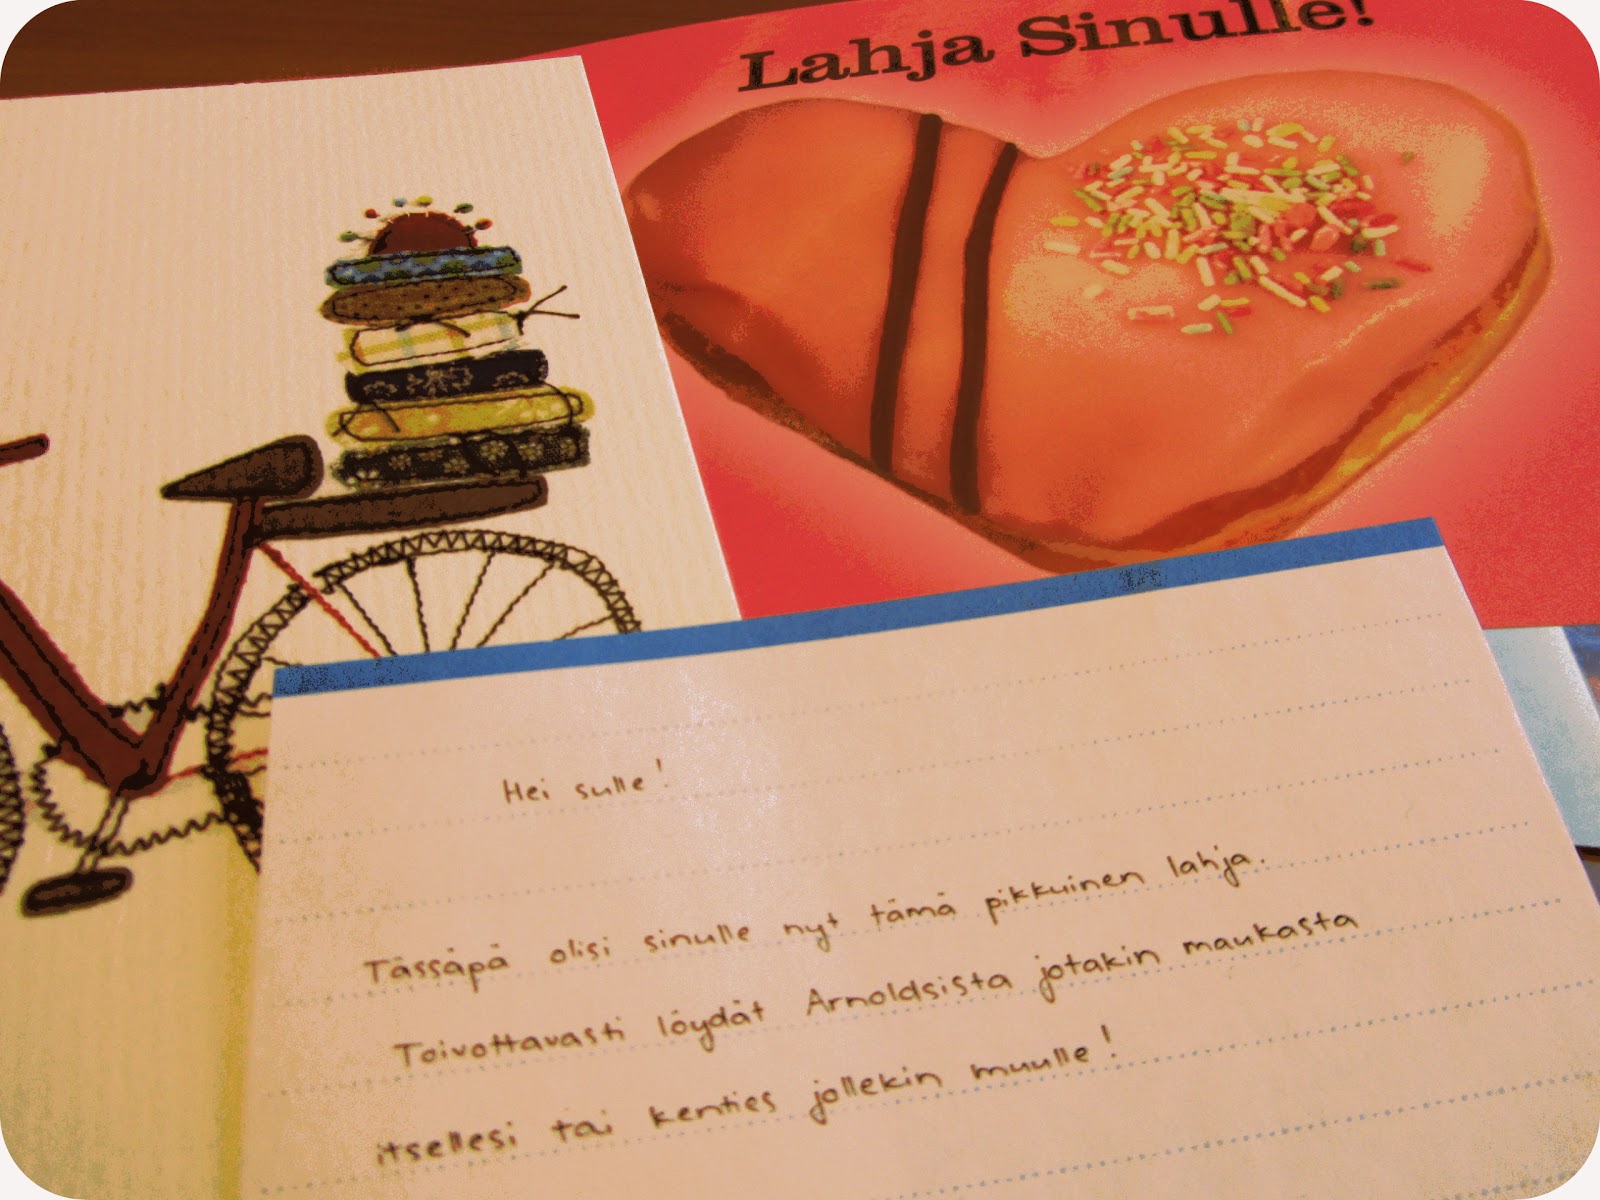 Lahja Sinulle!
Hei sulle!
Tässäpä olisi sinulle nyt tämä pikkuinen lahja.
Toivottavasti löydät Arnoldsista jotakin maukasta
itsellesi tai kenties jollekin muulle!